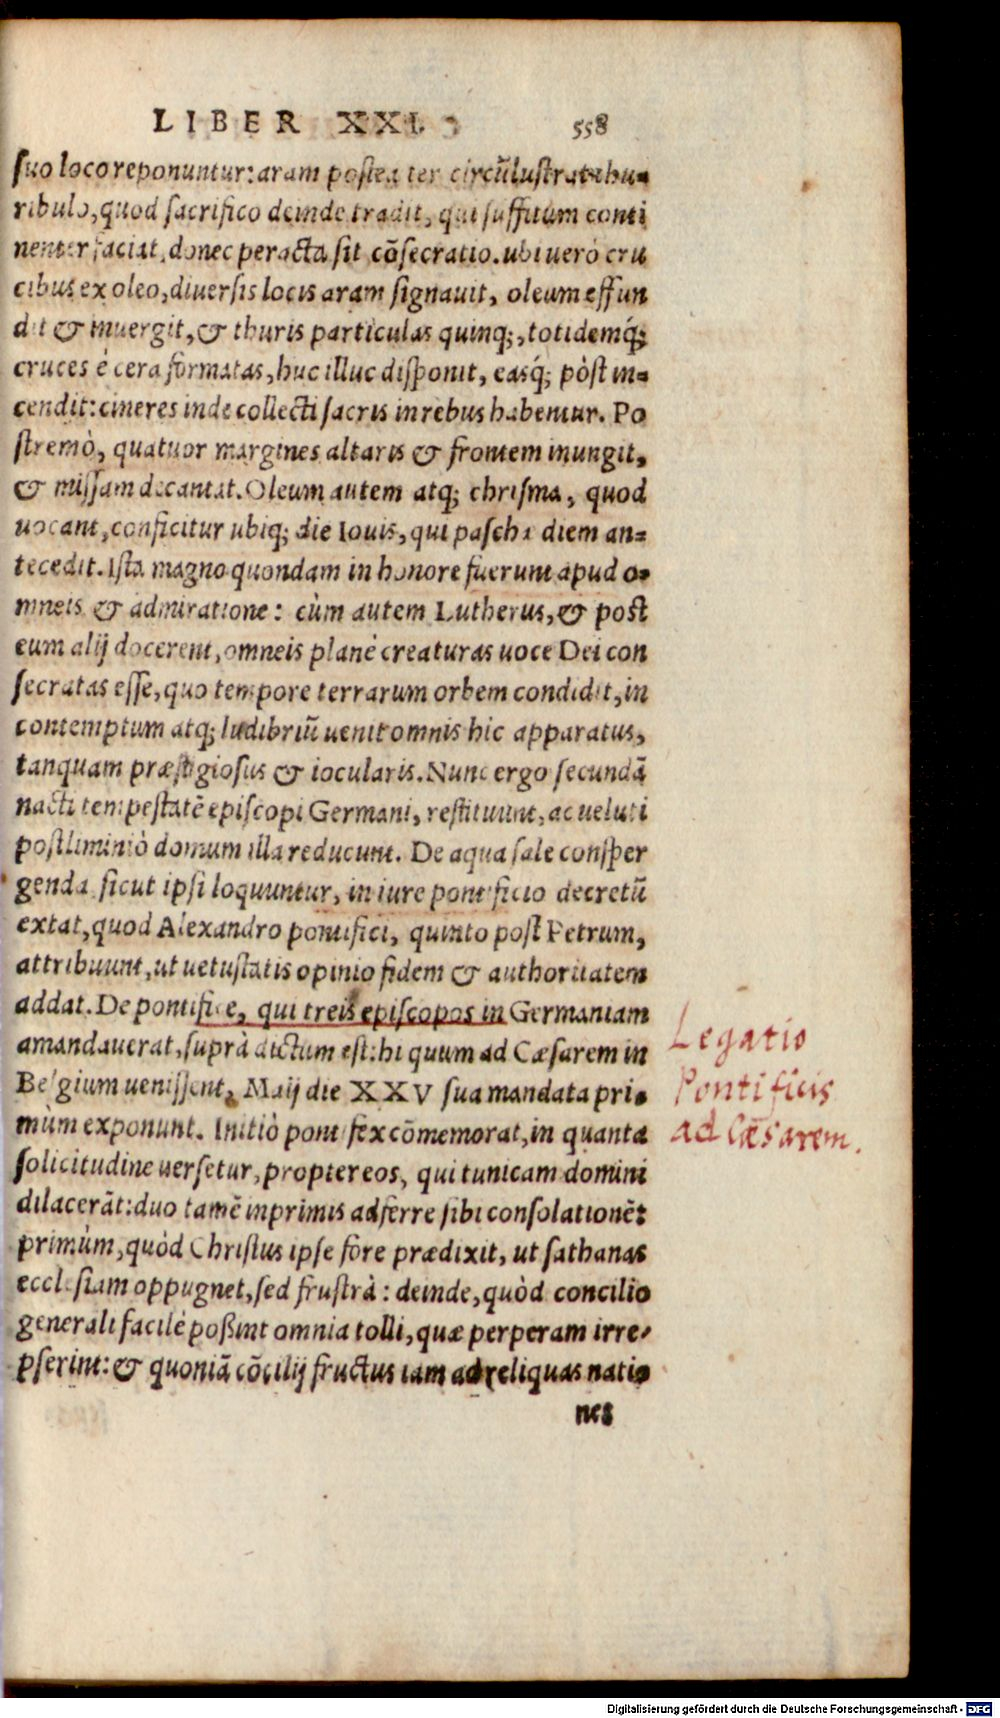 LIBER XXI. 558
suo loco reponuntur: aram postea ter circũlustrat thu-
ribulo, quod sacrifico deinde tradit, qui suffitum conti
nenter faciat, donec peracta sit cõsecratio. ubi uerò cru
cibus ex oleo, diuersis locis aram signauit, oleum effun
dit & inuergit, & thuris particulas quinq;, totidemq́;
cruces è cera formatas, huc illuc disponit, easq́; pòst in-
cendit: cineres inde collecti sacris in rebus habentur. Po
stremò, quatuor margines altaris & frontem inungit,
& missam decantat. Oleum autem atq; chrisma, quod
uocant, conficitur ubiq; die Iouis, qui paschæ diem an-
tecedit. Ista magno quondam in honore fuerunt apud o-
mneis & admiratione: cùm autem Lutherus, & post
eum alij docerent, omneis planè creaturas uoce Dei con
secratas esse, quo tempore terrarum orbem condidit, in
contemptum atq; ludibriũ uenit omnis hic apparatus,
tanquam præstigiosus & iocularis. Nunc ergo secundã
nacti tempestatẽ episcopi Germani, restituunt, ac ueluti
postliminiò domum illa reducunt. De aqua sale consper
genda sicut ipsi loquuntur, in iure pontificio decretũ
extat, quod Alexandro pontifici, quinto post Petrum,
attribuunt, ut uetustatis opinio fidem & authoritatem
addat. De pontifice, qui treis episcopos in Germaniam
amandauerat, suprà dictum est: hi quum ad Cæsarem in
Belgium uenissent, Maij die XXV sua mandata pri-
mùm exponunt. Initiò pontifex cõmemorat, in quanta
solicitudine uersetur, propter eos, qui tunicam domini
dilacerãt: duo tamẽ inprimis adferre sibi consolationẽ:
primùm, quòd Christus ipse fore prædixit, ut sathanas
ecclesiam oppugnet, sed frustrà: deinde, quòd concilio
generali facilè poßint omnia tolli, quæ perperam irre-
pserint: & quoniã cõcilij fructus iam ad reliquas natio
nes
Legatio
Pontificis
ad Cæsarem.
Digitalisierung gefördert durch die Deutsche Forschungsgemeinschaft - DFG